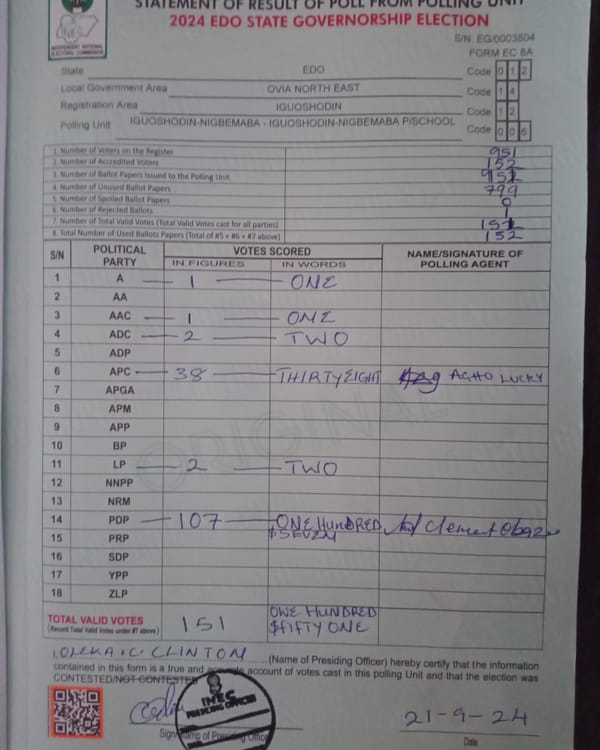 STATEMENT OF RESULT OF POLL FROM POLLING UNIT
2024 EDO STATE GOVERNORSHIP ELECTION
INEC
INDEPENDENT NATIONAL ELECTORAL COMMISSION
S/N: EG/0003804
FORM EC 8A
State EDO Code 0 1 2
Local Government Area OVIA NORTH EAST Code 1 4
Registration Area IGUOSHODIN Code 1 2
Polling Unit IGUOSHODIN-NIGBEMABA - IGUOSHODIN-NIGBEMABA P/SCHOOL Code 0 0 6
1. Number of Voters on the Register 951
2. Number of Accredited Voters 152
3. Number of Ballot Papers Issued to the Polling Unit 951
4. Number of Unused Ballot Papers 799
5. Number of Spoiled Ballot Papers 0
6. Number of Rejected Ballots 1
7. Number of Total Valid Votes (Total Valid Votes cast for all parties) 151
8. Total Number of Used Ballots Papers (Total of #5 + #6 + #7 above) 152
S/N POLITICAL PARTY VOTES SCORED NAME/SIGNATURE OF POLLING AGENT
IN FIGURES IN WORDS
1 A 1 ONE
2 AA
3 AAC 1 ONE
4 ADC 2 TWO
5 ADP
6 APC 38 THIRTYEIGHT LUCKY
7 APGA
8 APM
9 APP
10 BP
11 LP 2 TWO
12 NNPP
13 NRM
14 PDP 107 ONE HUNDRED Clement
15 PRP $SEVEN
16 SDP
17 YPP
18 ZLP
ORIGINAL
TOTAL VALID VOTES 151 ONE HUNDRED
(Record Total Valid Votes under #7 above) $FIFTY ONE
I, C. CLINTON (Name of Presiding Officer) hereby certify that the information
contained in this form is a true and accurate account of votes cast in this polling Unit and that the election was
CONTESTED/NOT CONTESTED
INEC
PRESIDING OFFICER
21-9-24
Sign Stamp of Presiding Officer Date